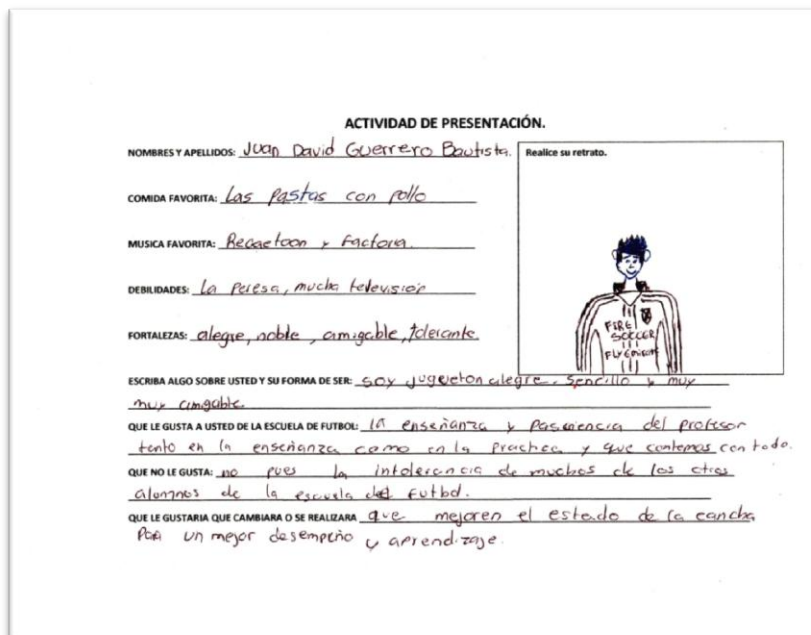 ACTIVIDAD DE PRESENTACIÓN.
NOMBRES Y APELLIDOS: Juan David Guerrero Bautista.
Realice su retrato.
COMIDA FAVORITA: Las Pastas con pollo
MUSICA FAVORITA: Regaetoon y factoria.
DEBILIDADES: La Peresa, mucha television
FORTALEZAS: alegre, noble, amigable, tolerante.
FIRE
SOCCER
FLY EMIRATE
ESCRIBA ALGO SOBRE USTED Y SU FORMA DE SER: soy jugueton alegre. Sencillo y muy
muy amigable.
QUE LE GUSTA A USTED DE LA ESCUELA DE FUTBOL: la enseñanza y pasciencia del profesor
tanto en la enseñanza como en la practica y que contemos con todo.
QUE NO LE GUSTA: no pues la intolerancia de muchos de los otros
alomnos de la escuela del futbol.
QUE LE GUSTARIA QUE CAMBIARA O SE REALIZARA que mejoren el estado de la cancha
Para un mejor desempeño y aprendizaje.